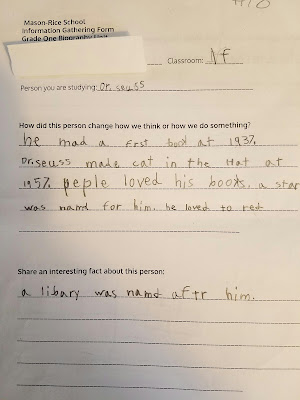 Mason-Rice School
Information Gathering Form
Grade One Biography Unit
Classroom: 1f
Person you are studying: Dr. seuss
How did this person change how we think or how we do something?
he mad a frst book at 1937.
Dr.seuss made cat in the Hat at
1957. peple loved his books. a star
was namd for him. he loved to red
Share an interesting fact about this person:
a libary was namd aftr him.